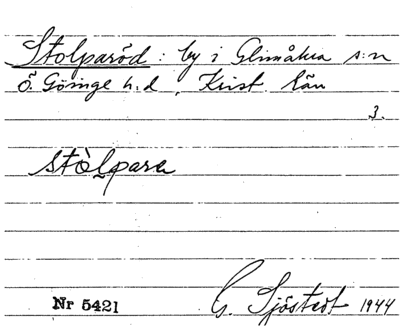 Stolparöd : by i Glimåkra s:n
Ö. Göinge h.d , Krist. län
3.
stòlpara
Nr 5421 G. Sjöstedt 1944